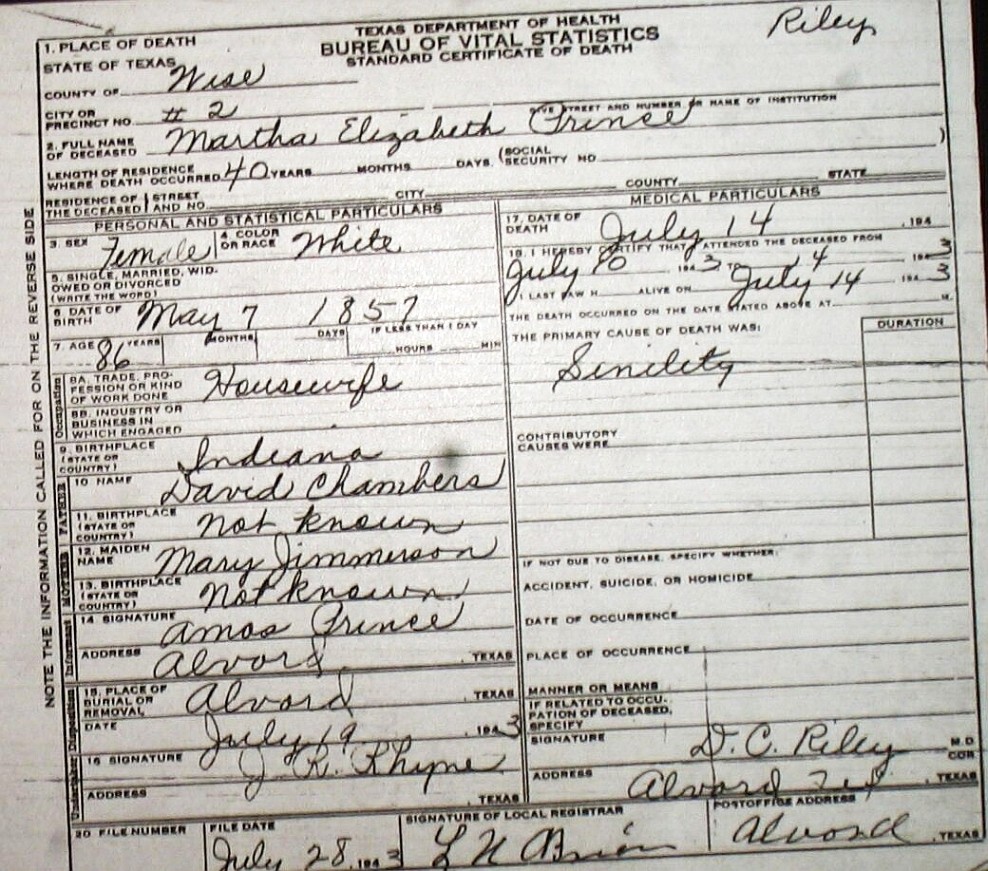 Riley
TEXAS DEPARTMENT OF HEALTH
BUREAU OF VITAL STATISTICS
STANDARD CERTIFICATE OF DEATH
1. PLACE OF DEATH
STATE OF TEXAS
COUNTY OF Wise
CITY OR
PRECINCT NO. # 2
GIVE STREET AND NUMBER OR NAME OF INSTITUTION
2. FULL NAME
OF DECEASED Martha Elizabeth Prince
LENGTH OF RESIDENCE
WHERE DEATH OCCURRED 40 YEARS MONTHS DAYS. (SOCIAL
SECURITY NO. )
RESIDENCE OF STREET
THE DECEASED AND NO. CITY COUNTY STATE
NOTE THE INFORMATION CALLED FOR ON THE REVERSE SIDE
PERSONAL AND STATISTICAL PARTICULARS
3. SEX Female 4. COLOR
OR RACE White
5. SINGLE, MARRIED, WID-
OWED OR DIVORCED
(WRITE THE WORD)
6 DATE OF
BIRTH May 7 1857
7. AGE 86 YEARS MONTHS DAYS IF LESS THAN 1 DAY
HOURS MIN
Occupation
8A. TRADE, PRO-
FESSION OR KIND
OF WORK DONE Housewife
8B. INDUSTRY OR
BUSINESS IN
WHICH ENGAGED
9. BIRTHPLACE
(STATE OR
COUNTRY) Indiana
FATHER
10 NAME David Chambers
11. BIRTHPLACE
(STATE OR
COUNTRY) not known
MOTHER
12. MAIDEN
NAME Mary Jimmerson
13. BIRTHPLACE
(STATE OR
COUNTRY) not known
Informant
14 SIGNATURE Amos Prince
ADDRESS Alvord, TEXAS
Disposition
15. PLACE OF
BURIAL OR
REMOVAL Alvord TEXAS
DATE July 19, 1943
Undertaker
16 SIGNATURE J. R. Rhyne
ADDRESS , TEXAS
MEDICAL PARTICULARS
17. DATE OF
DEATH July 14 , 194
18. I HEREBY CERTIFY THAT I ATTENDED THE DECEASED FROM
July 10 1943 TO 14 1943
I LAST SAW H ALIVE ON July 14 1943
THE DEATH OCCURRED ON THE DATE STATED ABOVE AT M.
THE PRIMARY CAUSE OF DEATH WAS: DURATION
Sinility
CONTRIBUTORY
CAUSES WERE
IF NOT DUE TO DISEASE, SPECIFY WHETHER:
ACCIDENT, SUICIDE, OR HOMICIDE
DATE OF OCCURRENCE
PLACE OF OCCURRENCE
MANNER OR MEANS
IF RELATED TO OCCU-
PATION OF DECEASED,
SPECIFY
SIGNATURE D. C. Riley M.D
COR
ADDRESS Alvord , TEXAS
20 FILE NUMBER FILE DATE SIGNATURE OF LOCAL REGISTRAR POSTOFFICE ADDRESS
July 28, 1943 Alvord , TEXAS